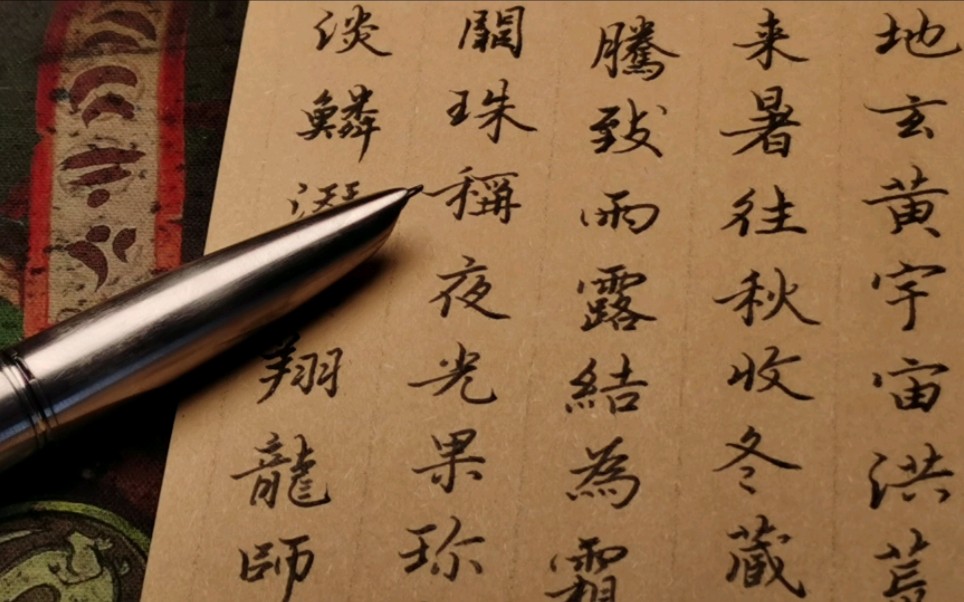 地玄黄宇宙洪荒
来暑往秋收冬蔵
騰致雨露結為霜
闕珠稱夜光果珎
淡鱗潛翔龍師